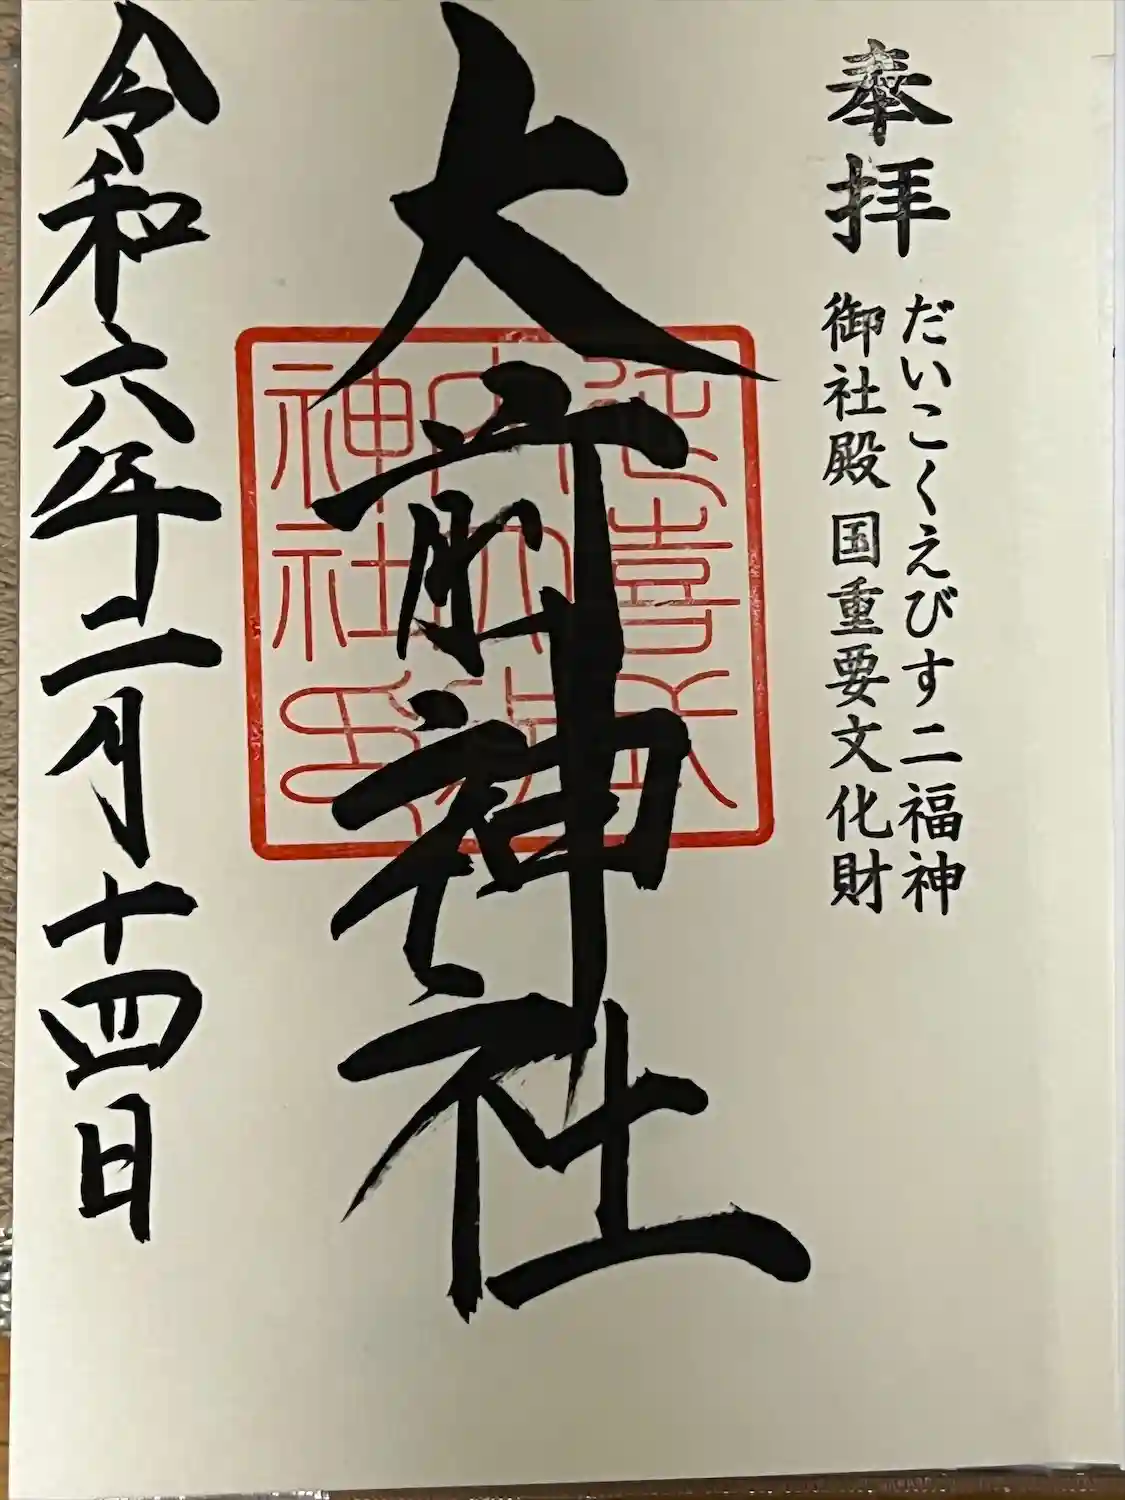 奉拝
だいこくえびす二福神
御社殿 国重要文化財
大前神社
延喜式
内大前
神社印
令和六年二月十四日